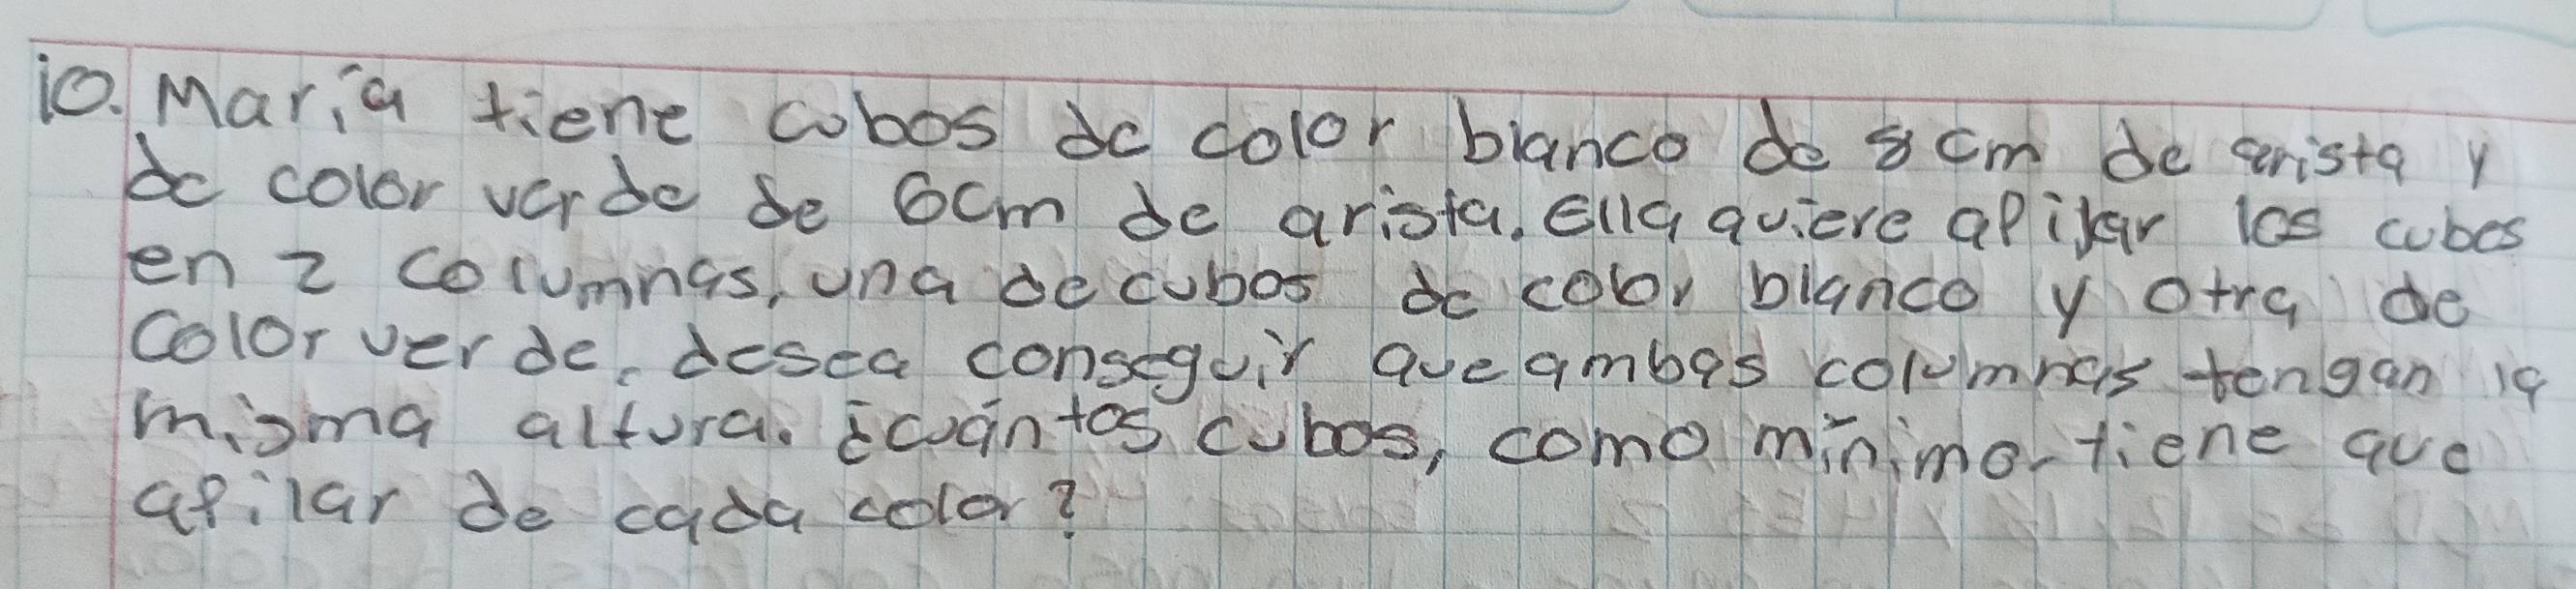 10. María tiene cubos de color blanco de 8 cm de arista y
de color verde de 6cm de arista. Ella quiere apilar los cubos
en 2 columnas, una de cubos de color blanco y otra de
color verde, desea conseguir que ambas columnas tengan la
misma altura. ¿cuántos cubos, como mínimo tiene que
apilar de cada color?